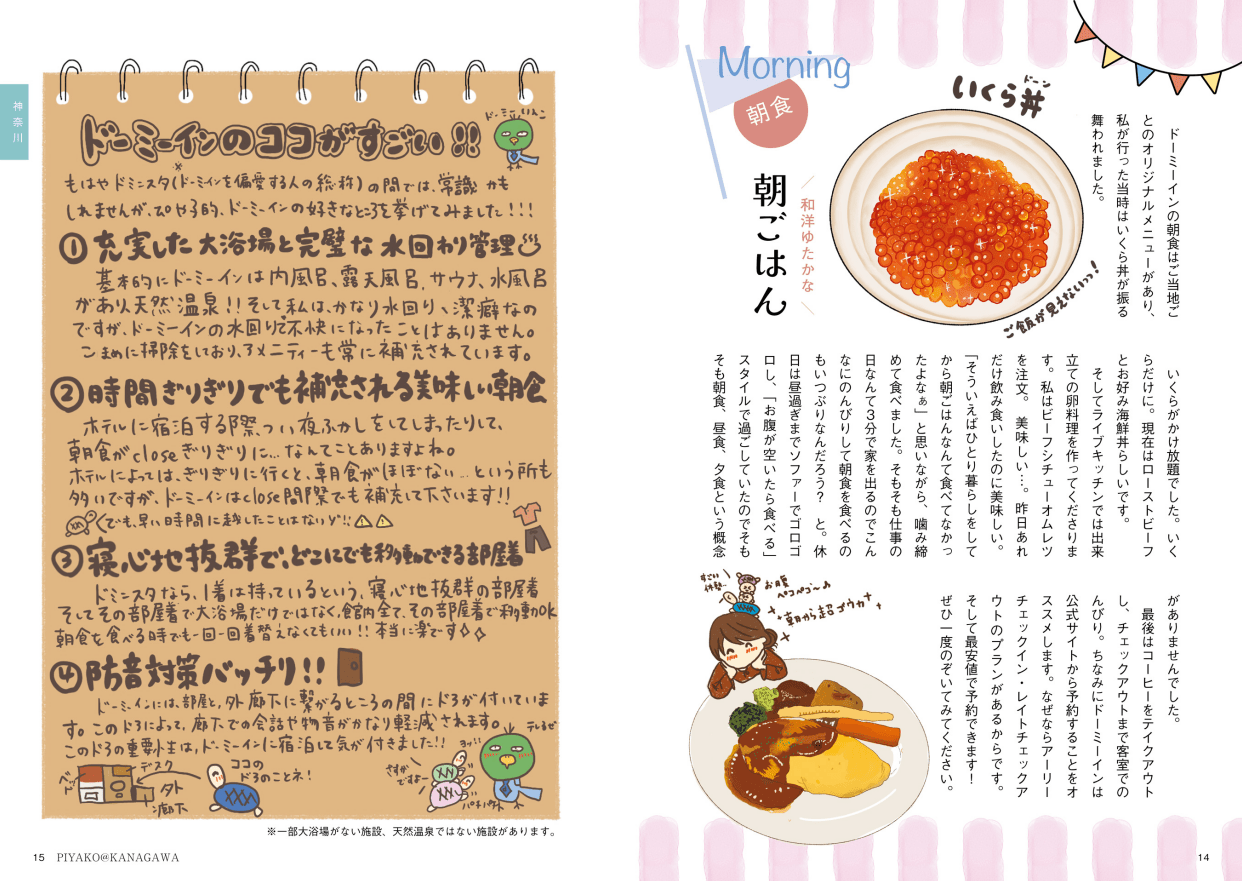 Morning
朝食
和洋ゆたかな
朝ごはん
いくら丼
ドーン
ご飯が見えないっっ!
ドーミーインの朝食はご当地ご
とのオリジナルメニューがあり、
私が行った当時はいくら丼が振る
舞われました。
いくらがかけ放題でした。いく
らだけに。現在はローストビーフ
とお好み海鮮丼らしいです。
そしてライブキッチンでは出来
立ての卵料理を作ってくださりま
す。私はビーフシチューオムレツ
を注文。 美味しい…。昨日あれ
だけ飲み食いしたのに美味しい。
「そういえばひとり暮らしをして
から朝ごはんなんて食べてなかっ
たよなぁ」と思いながら、噛み締
めて食べました。そもそも仕事の
日なんて3分で家を出るのでこん
なにのんびりして朝食を食べるの
もいつぶりなんだろう? と。休
日は昼過ぎまでソファーでゴロゴ
ロし、「お腹が空いたら食べる」
スタイルで過ごしていたのでそも
そも朝食、昼食、夕食という概念
がありませんでした。
最後はコーヒーをテイクアウト
し、チェックアウトまで客室での
んびり。ちなみにドーミーインは
公式サイトから予約することをオ
ススメします。なぜならアーリー
チェックイン・レイトチェックア
ウトのプランがあるからです。
そして最安値で予約できます!
ぜひ一度のぞいてみてください。
すごい
お腹
ペコペコ〜♪
朝から超ゴウカ
14
神奈川
ドーミーインのココがすごい!!
ドーミーいんこ
もはやドミニスタ(ドーミーインを偏愛する人の総称)の間では、常識かも
しれませんが、ぴやこ的、ドーミーインの好きなところを挙げてみました!!!
①充実した大浴場と完璧な水回り管理♨
基本的にドーミーインは内風呂、露天風呂、サウナ、水風呂
があり、天然温泉!!そして私は、かなり水回り、潔癖なの
ですが、ドーミーインの水回りで不快になったことはありません。
こまめに掃除をしており、アメニティーも常に補充されています。
②時間ぎりぎりでも補充される美味しい朝食
ホテルに宿泊する際、つい夜ふかしをしてしまったりして、
朝食がcloseぎりぎりに…なんてことありますよね。
ホテルによっては、ぎりぎりに行くと、朝食がほぼない…という所も
多いですが、ドーミーインはclose間際でも補充して下さいます!!
でも、早い時間に越したことはないゾ!!
③寝心地抜群で、どこにでも移動できる部屋着
ドミニスタなら、1着は持っているという、寝心地抜群の部屋着
そしてその部屋着で大浴場だけではなく、館内全て、その部屋着で移動OK
朝食を食べる時でも一回一回着替えなくてもいい!!本当に楽です
④防音対策バッチリ!!
ドーミーインには、部屋と、外廊下に繋がるところの間にドアが付いていま
す。このドアによって、廊下での会話や物音がかなり軽減されます。
このドアの重要性は、ドーミーインに宿泊して気が付きました!!
ベッド
デスク
外
廊下
ココの
ドアのことネ!
さすが
ですよー
ヨッ!!
パチパチ
てれるぜ
※一部大浴場がない施設、天然温泉ではない施設があります。
15 PIYAKO@KANAGAWA